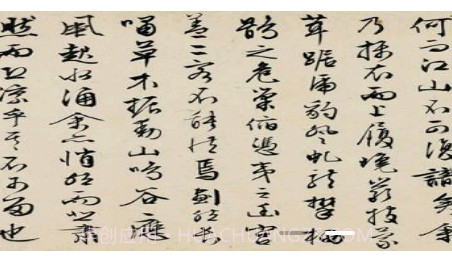 何而江山不可復識矣余
乃攝衣而上履巉岩披蒙
茸踞虎豹登虬龍攀栖
鶻之危巢俯憑夷之幽宮
蓋二客不能從焉劃然長
嘯草木振動山鳴谷應
風起水涌余亦悄然而悲肅
然而恐凜乎其不可留也